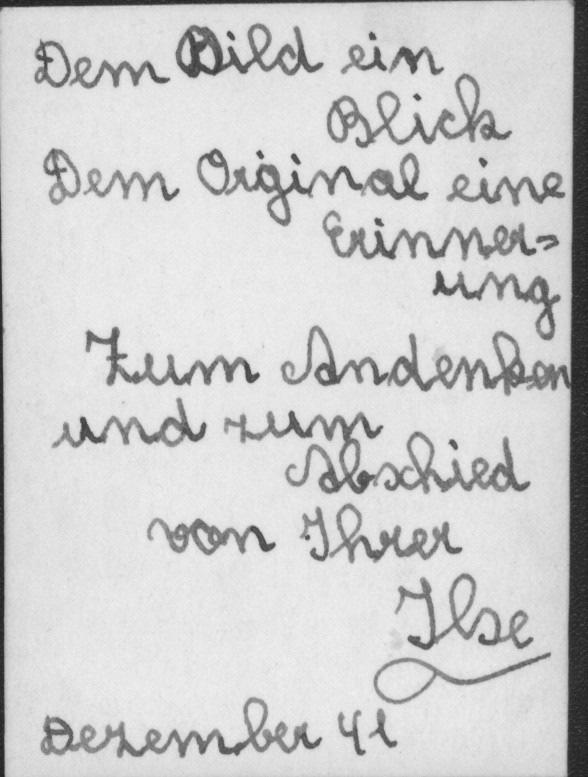 Dem Bild ein
Blick
Dem Orginal eine
Erinner=
ung
Zum Andenken
und zum
Abschied
von Ihrer
Ilse
Dezember 41